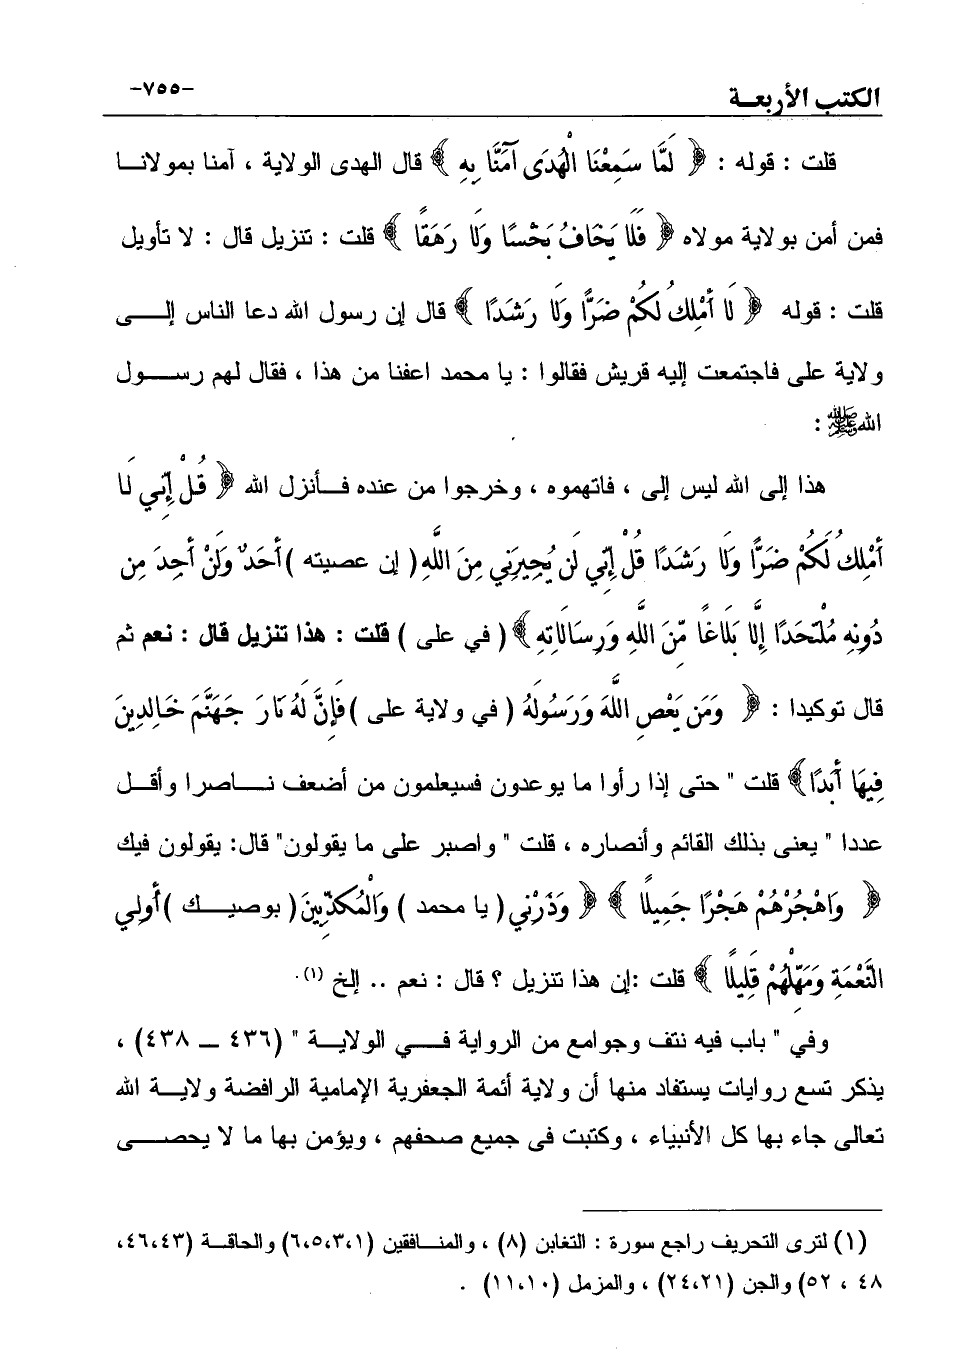 الكتب الأربعــة
-٧٥٥-
قلت : قوله : ﴿ لَمَّا سَمِعْنَا الْهُدَى آمَنَّا بِهِ ﴾ قال الهدى الولاية ، آمنا بمولانــا
فمن أمن بولاية مولاه ﴿ فَلَا يَخَافُ بَخْسًا وَلَا رَهَقًا ﴾ قلت : تنزيل قال : لا تأويل
قلت : قوله ﴿ لَا أَمْلِكُ لَكُمْ ضَرًّا وَلَا رَشَدًا ﴾ قال إن رسول الله دعا الناس إلــى
ولاية على فاجتمعت إليه قريش فقالوا : يا محمد اعفنا من هذا ، فقال لهم رســول
اللهﷺ :
هذا إلى الله ليس إلى ، فاتهموه ، وخرجوا من عنده فــأنزل الله ﴿ قُلْ إِنِّي لَا
أَمْلِكُ لَكُمْ ضَرًّا وَلَا رَشَدًا قُلْ إِنِّي لَن يُجِيرَنِي مِنَ اللَّهِ( إن عصيته )أَحَدٌ وَلَنْ أَجِدَ مِن
دُونِهِ مُلْتَحَدًا إِلَّا بَلَاغًا مِّنَ اللَّهِ وَرِسَالَاتِهِ ﴾( في على ) قلت : هذا تنزيل قال : نعم ثم
قال توكيدا : ﴿ وَمَن يَعْصِ اللَّهَ وَرَسُولَهُ ( في ولاية على )فَإِنَّ لَهُ نَارَ جَهَنَّمَ خَالِدِينَ
فِيهَا أَبَدًا﴾ قلت " حتى إذا رأوا ما يوعدون فسيعلمون من أضعف نــاصرا وأقــل
عددا " يعنى بذلك القائم وأنصاره ، قلت " واصبر على ما يقولون" قال: يقولون فيك
﴿ وَاهْجُرْهُمْ هَجْرًا جَمِيلًا ﴾ ﴿ وَذَرْنِي( يا محمد ) وَالْمُكَذِّبِينَ( بوصيــك )أُولِي
النَّعْمَةِ وَمَهِّلْهُمْ قَلِيلًا ﴾ قلت :إن هذا تنزيل ؟ قال : نعم .. إلخ (١).
وفي " باب فيه نتف وجوامع من الرواية فــي الولايــة " (٤٣٦ – ٤٣٨) ،
يذكر تسع روايات يستفاد منها أن ولاية أئمة الجعفرية الإمامية الرافضة ولايــة الله
تعالى جاء بها كل الأنبياء ، وكتبت فى جميع صحفهم ، ويؤمن بها ما لا يحصــى
(١) لترى التحريف راجع سورة : التغابن (٨) ، والمنــافقين (٦،٥،٣،١) والحاقــة (٤٦،٤٣،
٤٨ ، ٥٢) والجن (٢٤،٢١) ، والمزمل (١١،١٠) .